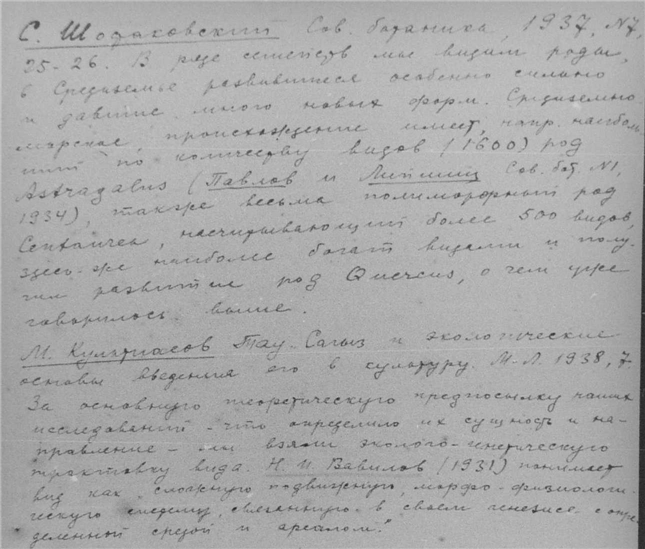 С. Шостаковский Сов. ботаника, 1937, N7,
25-26. В ряде семейств мы видим роды,
в Средиземье развившиеся особенно сильно
и давшие много новых форм. Средиземно-
морское происхождение имеет, напр. наиболь-
ший по количеству видов (1600) род
Astragalus (Павлов и Липшиц Сов. бот. N1,
1934), также весьма полиморфный род
Centaurea, насчитывающий более 500 видов,
здесь-же наиболее богат видами и полу-
чил развитие род Quercus, о чем уже
говорилось выше.
М. Культиасов Тау-Сагыз и экологические
основы введения его в культуру. М-Л. 1938, 7
За основную теоретическую предпосылку наших
исследований - что определило их сущность и на-
правление - мы взяли эколого-генетическую
трактовку вида. Н. И. Вавилов (1931) понимает
вид как "сложную подвижную морфо-физиологи-
ческую систему, связанную в своем генезисе с опре-
деленной средой и ареалом".